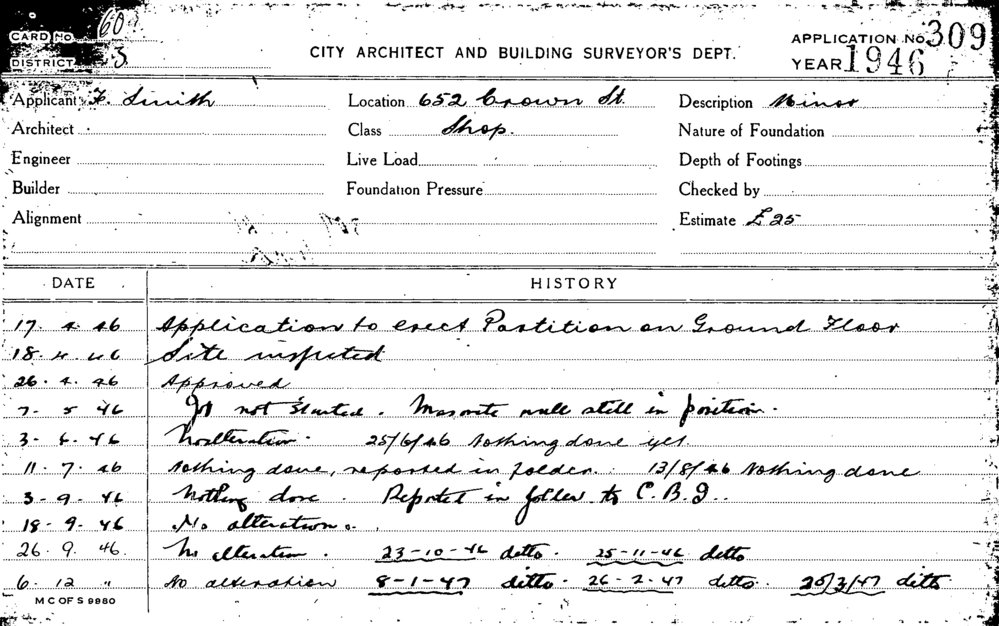 CARD No. 60
DISTRICT 3
CITY ARCHITECT AND BUILDING SURVEYOR'S DEPT.
APPLICATION No. 309
YEAR 1946
Applicant F. Smith Location 652 Crown St. Description Minor
Architect Class Shop. Nature of Foundation
Engineer Live Load Depth of Footings
Builder Foundation Pressure Checked by
Alignment Estimate £25
DATE HISTORY
17. 4. 46 Application to erect Partition on Ground Floor
18. 4. 46 Site inspected
26. 4. 46 Approved
7. 5 46 Job not started. Masonite wall still in position.
3. 6. 46 No alteration. 25/6/46 Nothing done yet.
11. 7. 46 Nothing done, reported in folder. 13/8/46 Nothing done
3. 9. 46 Nothing done. Reported in folder to C.B.I.
18. 9. 46 No alteration.
26. 9. 46. No alteration. 23-10-46 ditto. 25-11-46 ditto
6. 12 " No alteration 8-1-47 ditto. 26-2.47 ditto. 25/3/47 ditto
M C OF S 9980